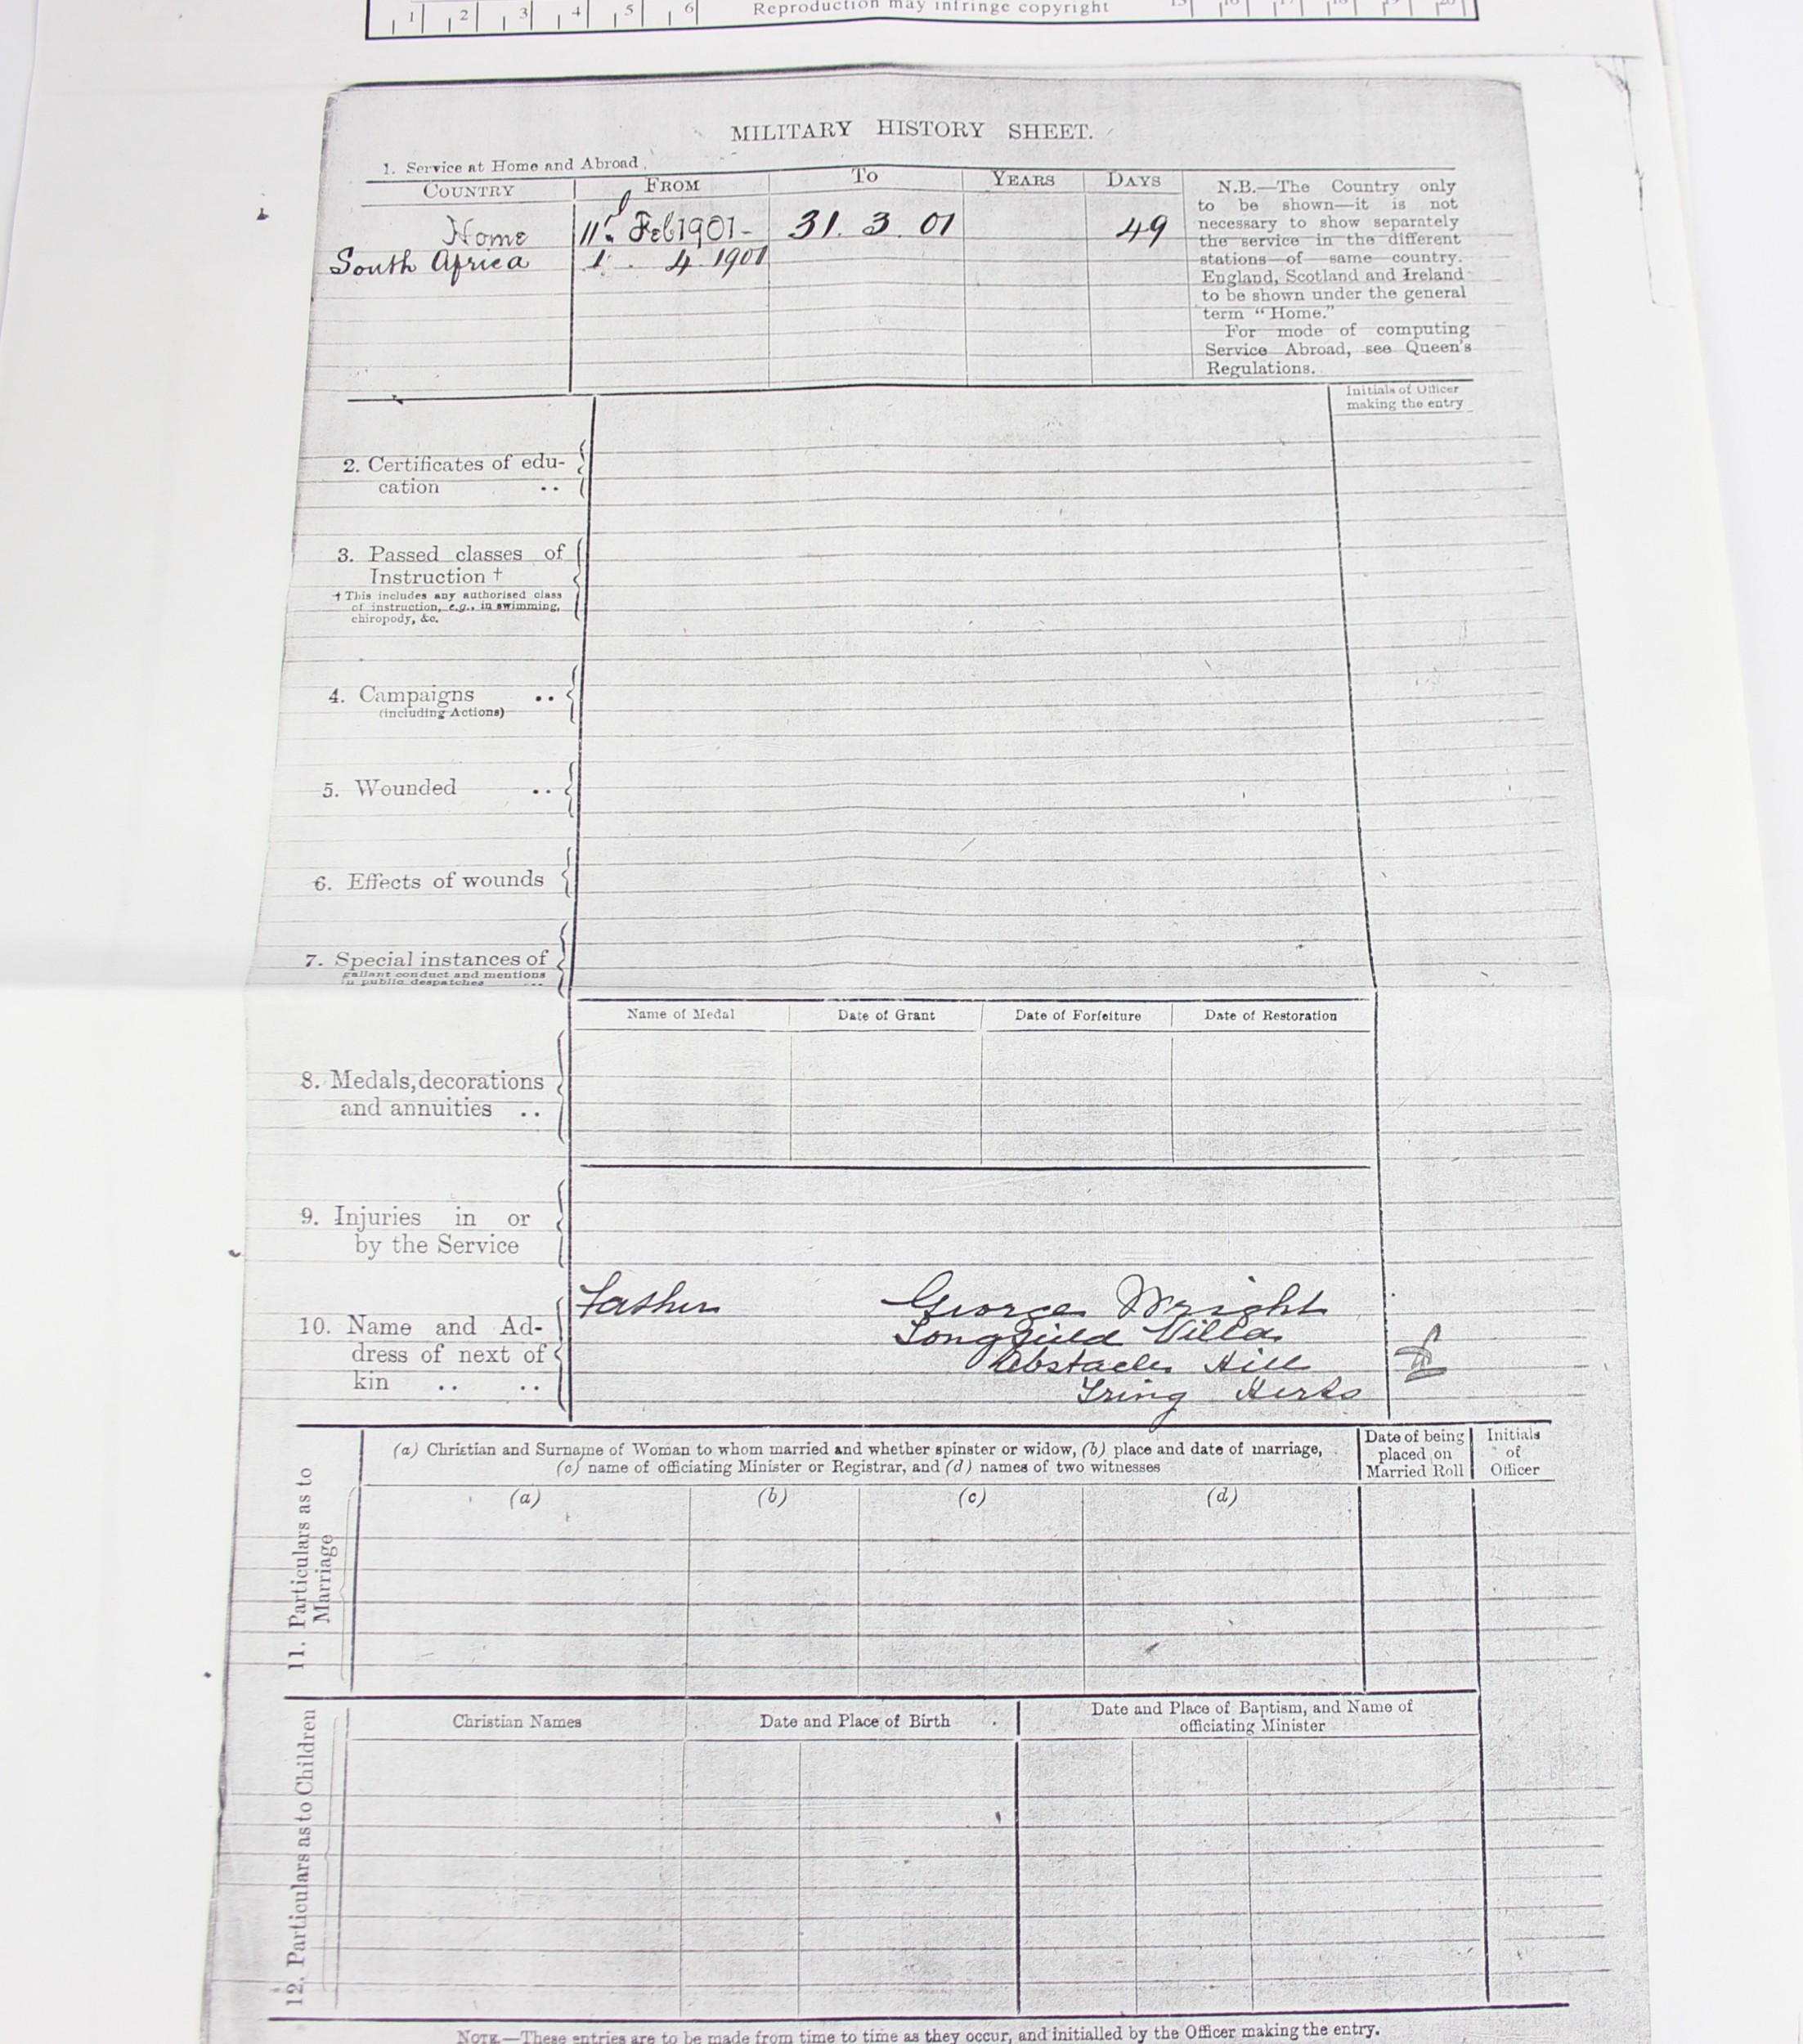 1 2 3 4 5 6 Reproduction may infringe copyright
MILITARY HISTORY SHEET.
1. Service at Home and Abroad
COUNTRY FROM To YEARS DAYS
Home 11 Feb 1901 - 31. 3. 01 49
South Africa 1. 4 1901
N.B.—The Country only
to be shown—it is not
necessary to show separately
the service in the different
stations of same country.
England, Scotland and Ireland
to be shown under the general
term "Home."
For mode of computing
Service Abroad, see Queen's
Regulations.
Initials of Officer
making the entry
2. Certificates of edu-
cation ..
3. Passed classes of
Instruction †
† This includes any authorised class
of instruction, e.g., in swimming,
chiropody, &c.
4. Campaigns ..
(including Actions)
5. Wounded ..
6. Effects of wounds
7. Special instances of
gallant conduct and mentions
in public despatches ...
Name of Medal Date of Grant Date of Forfeiture Date of Restoration
8. Medals, decorations
and annuities ..
9. Injuries in or
by the Service
10. Name and Ad-
dress of next of
kin .. ..
Father George Wright
Longfield Villa
Obstacle Hill
Tring Herts
11. Particulars as to
Marriage
(a) Christian and Surname of Woman to whom married and whether spinster or widow, (b) place and date of marriage,
(c) name of officiating Minister or Registrar, and (d) names of two witnesses
Date of being
placed on
Married Roll
Initials
of
Officer
(a) (b) (c) (d)
12. Particulars as to Children
Christian Names Date and Place of Birth
Date and Place of Baptism, and Name of
officiating Minister
NOTE.—These entries are to be made from time to time as they occur, and initialled by the Officer making the entry.